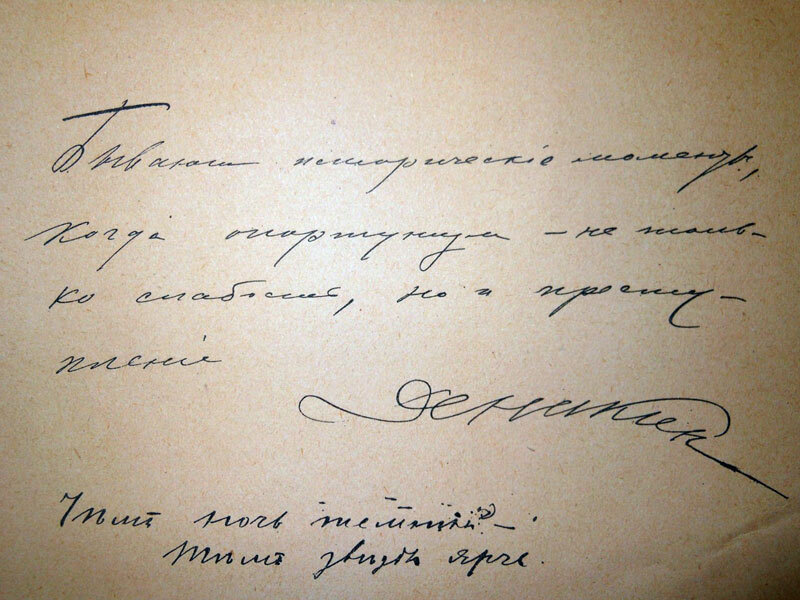 Бывают историческіе моменты,
когда опортунизм – не толь-
ко слабость, но и престу-
пленіе
Деникин
Чѣмъ ночь темнѣй –
Тѣмъ звѣзды ярче.